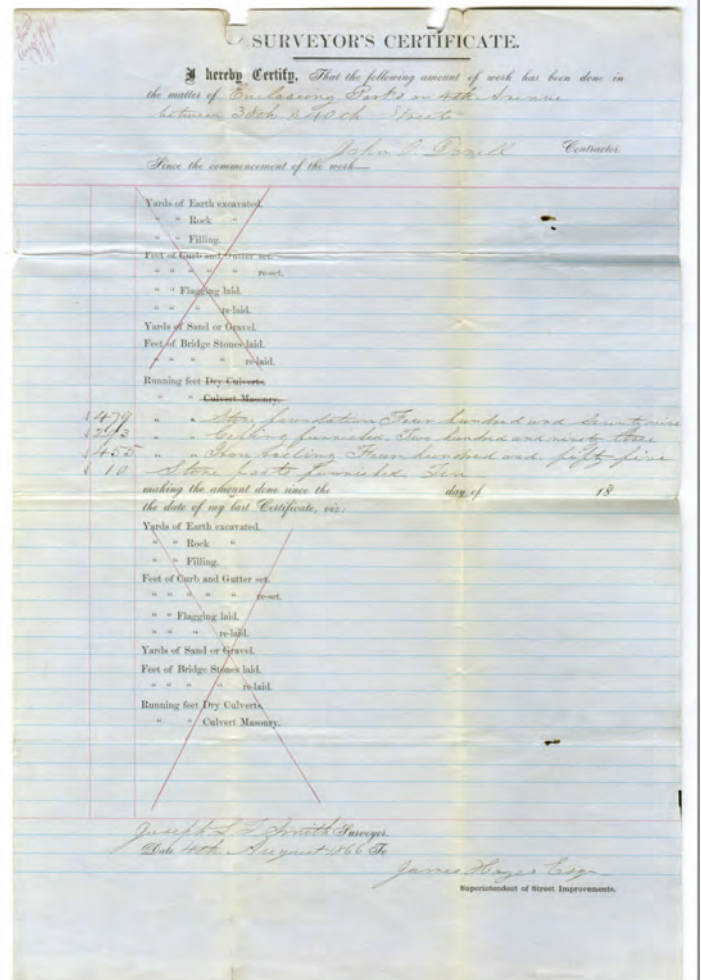 SURVEYOR'S CERTIFICATE.
I hereby Certify, That the following amount of work has been done in
the matter of Enclosing Parks on 4th Avenue
between 38th & 40th Streets
John Contractor.
Since the commencement of the work—
Yards of Earth excavated.
" " Rock "
" " Filling.
Feet of Curb and Gutter set.
" " " " " re-set.
" " Flagging laid.
" " " re-laid.
Yards of Sand or Gravel.
Feet of Bridge Stones laid.
" " " " re-laid.
Running feet Dry Culverts.
" " Culvert Masonry.
479 " " Stone foundation Four hundred and Seventy nine
293 " " furnished Two hundred and ninety three
455 " " Iron Four hundred and fifty five
10 Stone posts furnished Ten
making the amount done since the day of 18
the date of my last Certificate, viz:
Yards of Earth excavated.
" " Rock "
" " Filling.
Feet of Curb and Gutter set.
" " " " " re-set.
" " Flagging laid.
" " " re-laid.
Yards of Sand or Gravel.
Feet of Bridge Stones laid.
" " " " re-laid.
Running feet Dry Culverts.
" " Culvert Masonry.
Joseph Smith Surveyor.
Date 4th August 1866 To
James Hayes Esqr
Superintendent of Street Improvements.